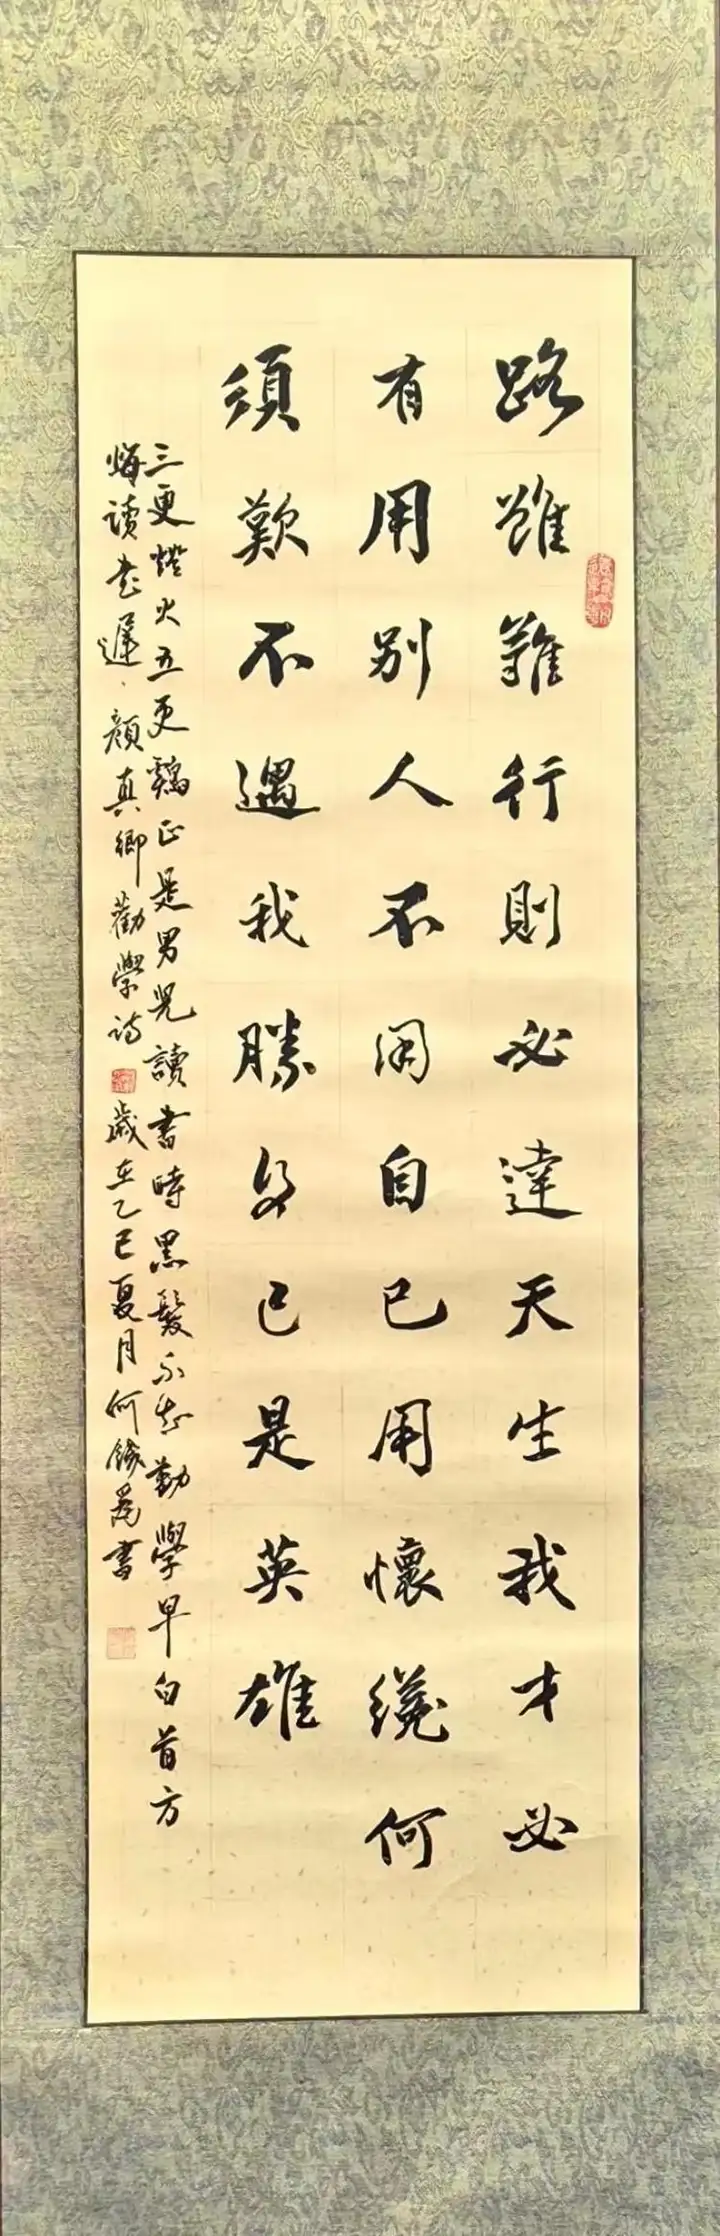 路雖難行則必達天生我才必
有用別人不用自己用懷纔何
須歎不遇我勝己是英雄
三更燈火五更鷄正是男兒讀書時黑髮不知勤學早白首方
悔讀書遲、顏真卿勸學詩 歲在乙巳夏月何書